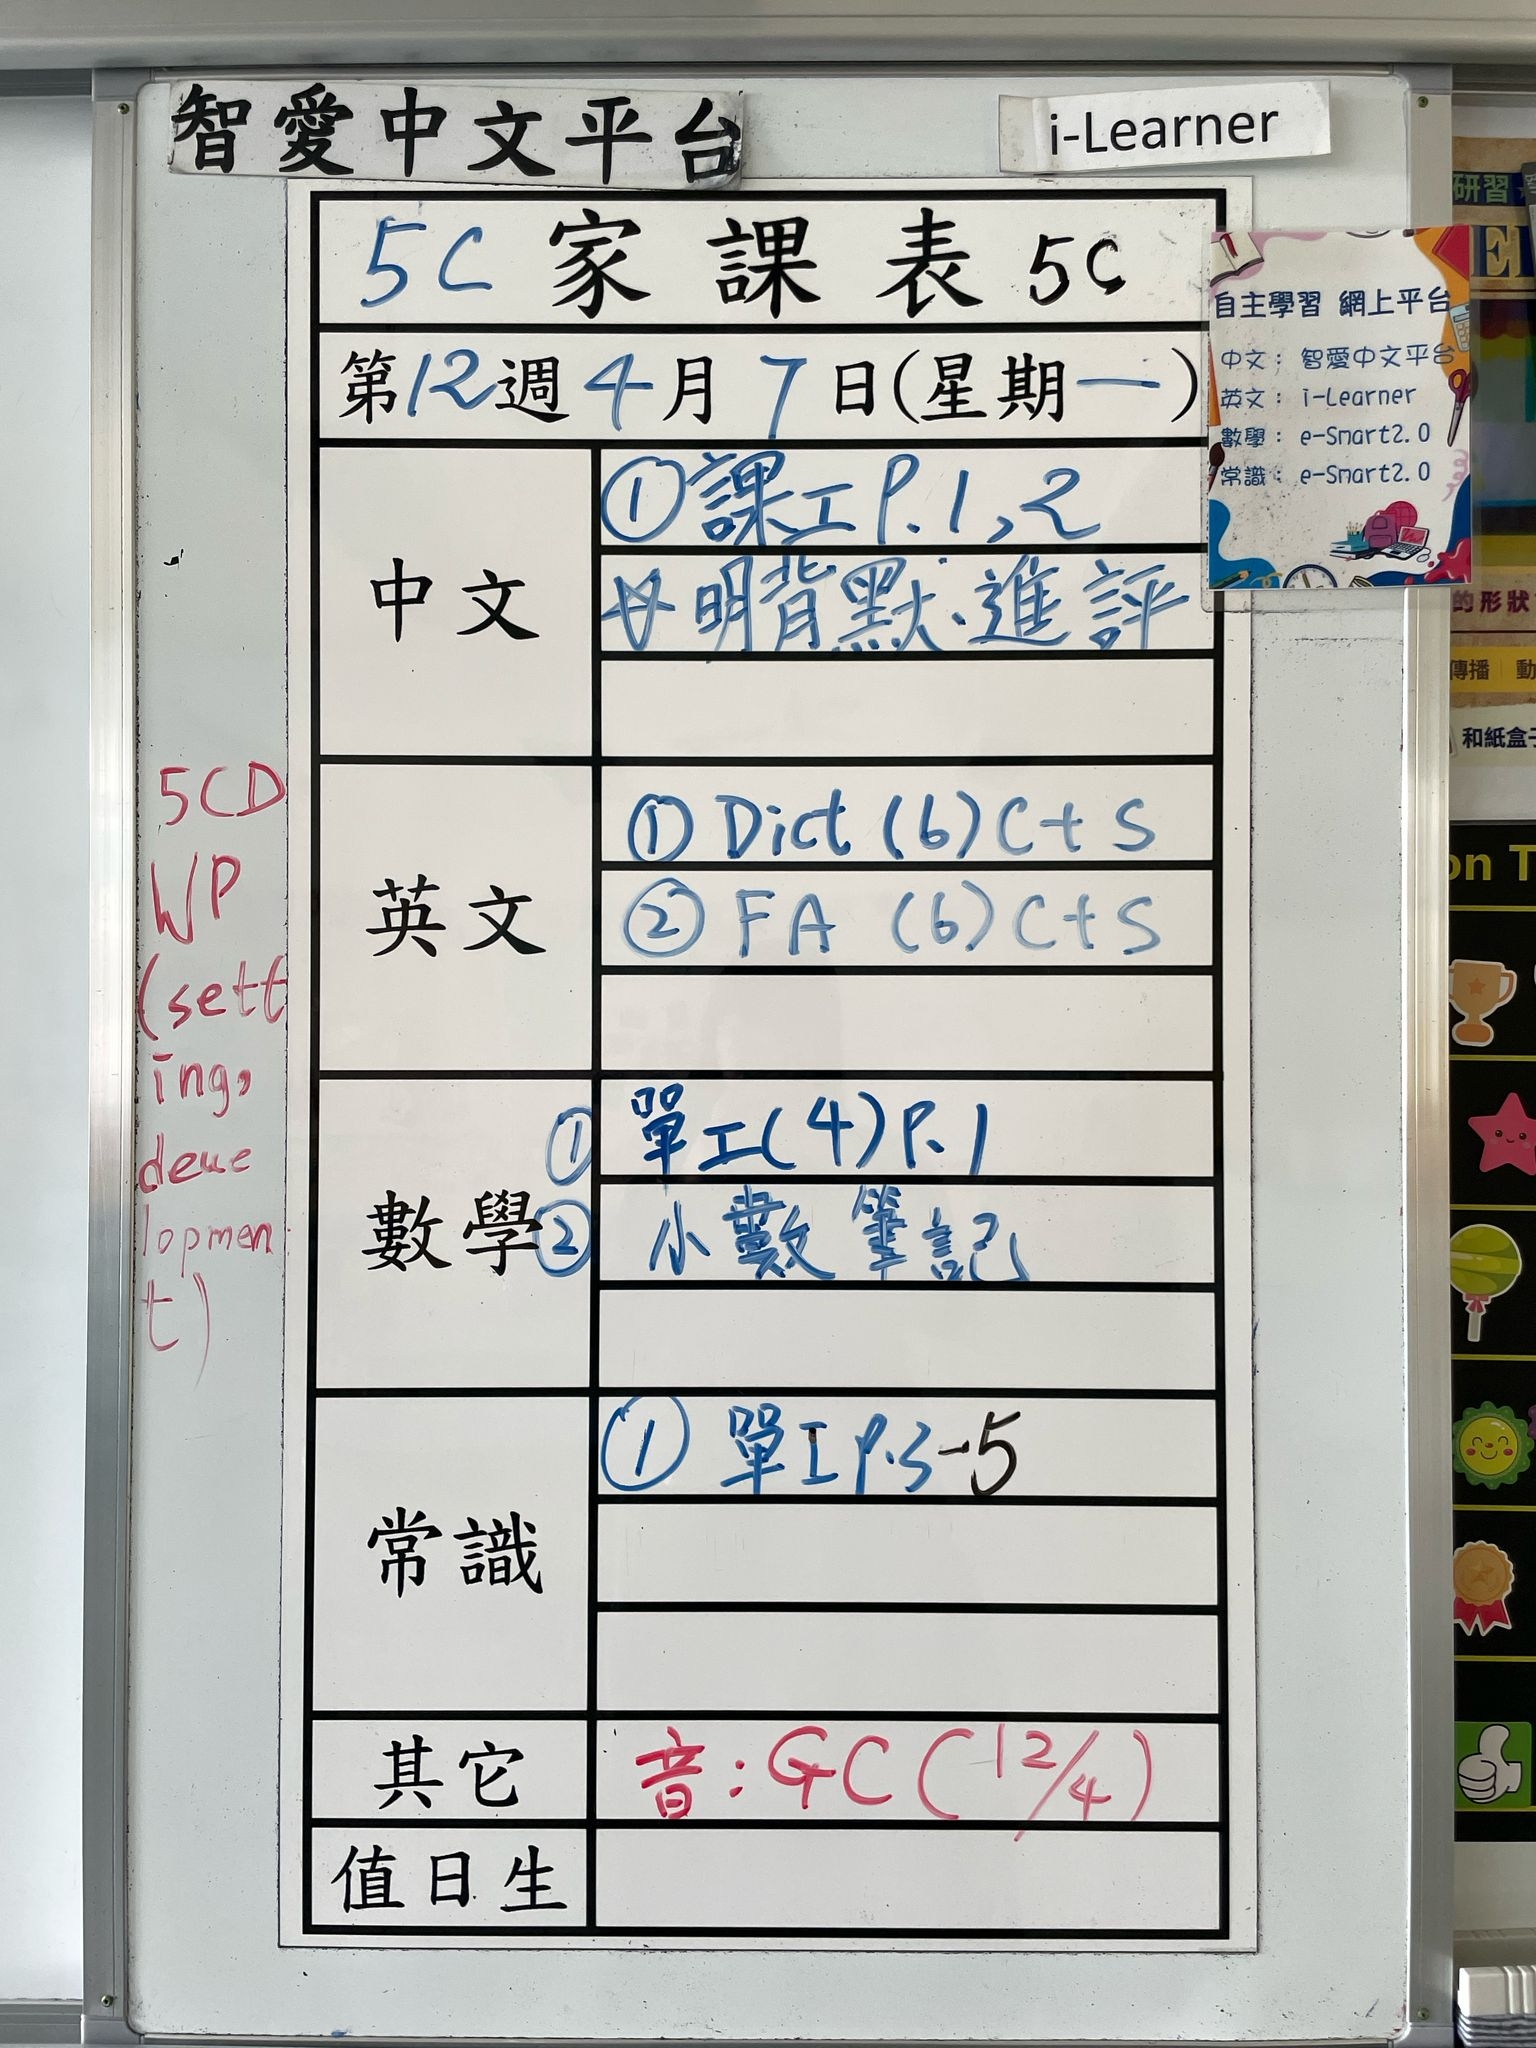 智愛中文平台
i-Learner
5C 家課表 5C
第12週4月7日(星期一)
中文
①課工P.1,2
☆明背默.進評
英文
①Dict (6) C+S
②FA (6) C+S
數學
①單工(4)P.1
②小數筆記
常識
①單工P.3-5
其它
音:GC(12/4)
值日生
5CD
WP
(sett
ing,
deve
lopmen
t)
自主學習 網上平台
中文:智愛中文平台
英文:i-Learner
數學:e-Smart2.0
常識:e-Smart2.0
研習
的形狀
傳播
動
和紙盒子
on T